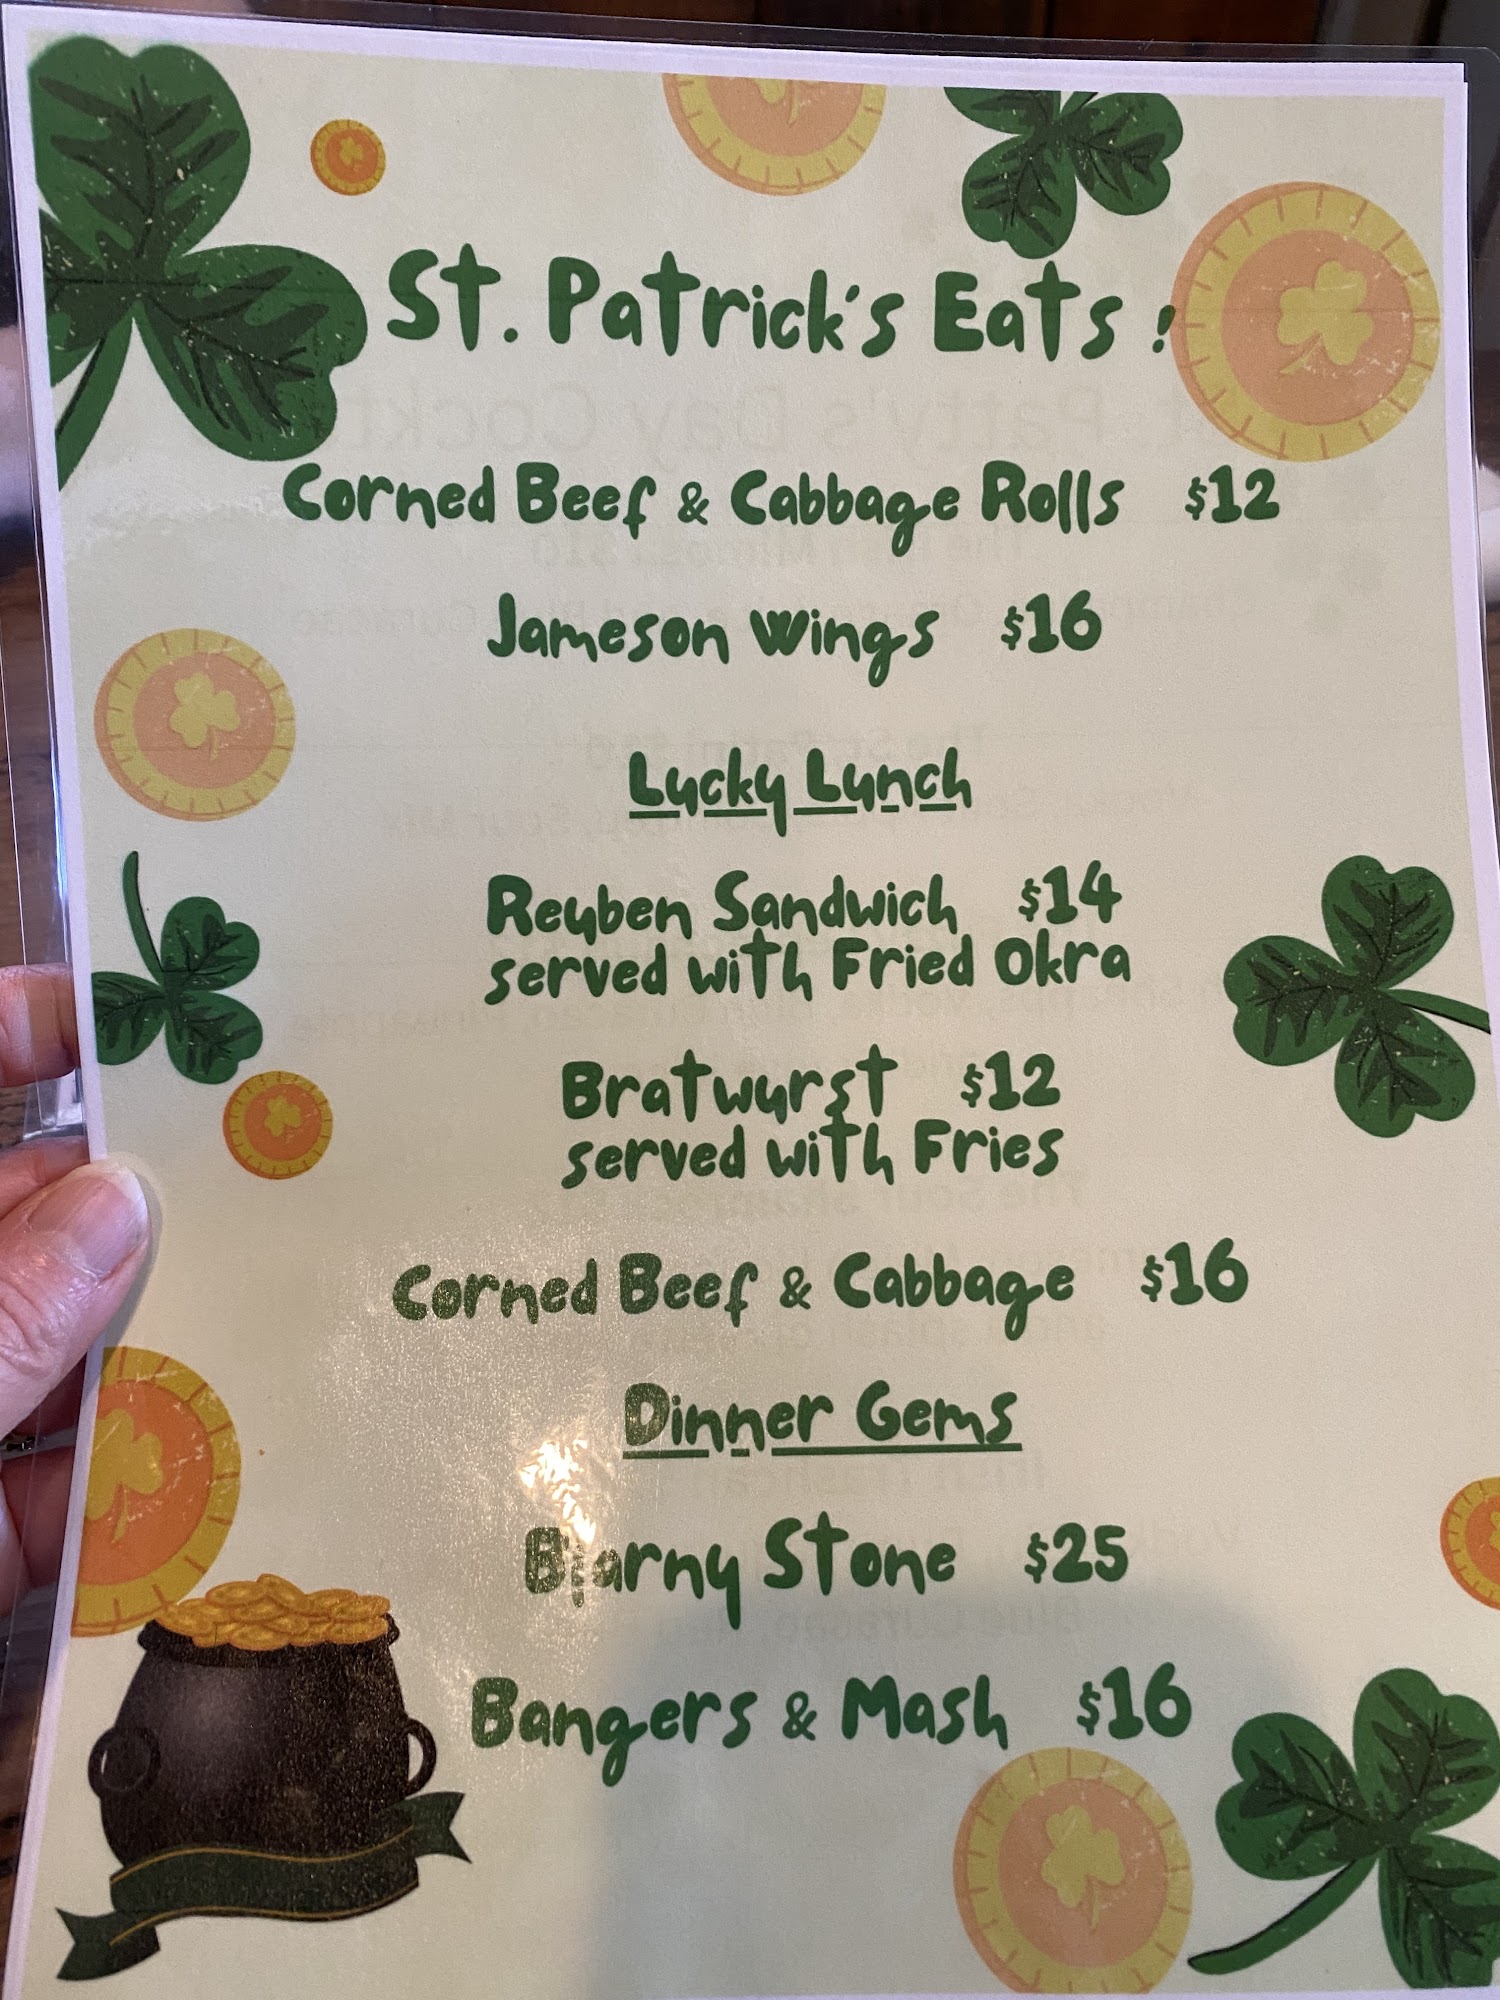 St. Patrick's Eats!
Corned Beef & Cabbage Rolls $12
Jameson Wings $16
Lucky Lunch
Reuben Sandwich $14
served with Fried Okra
Bratwurst $12
served with Fries
Corned Beef & Cabbage $16
Dinner Gems
Blarny Stone $25
Bangers & Mash $16